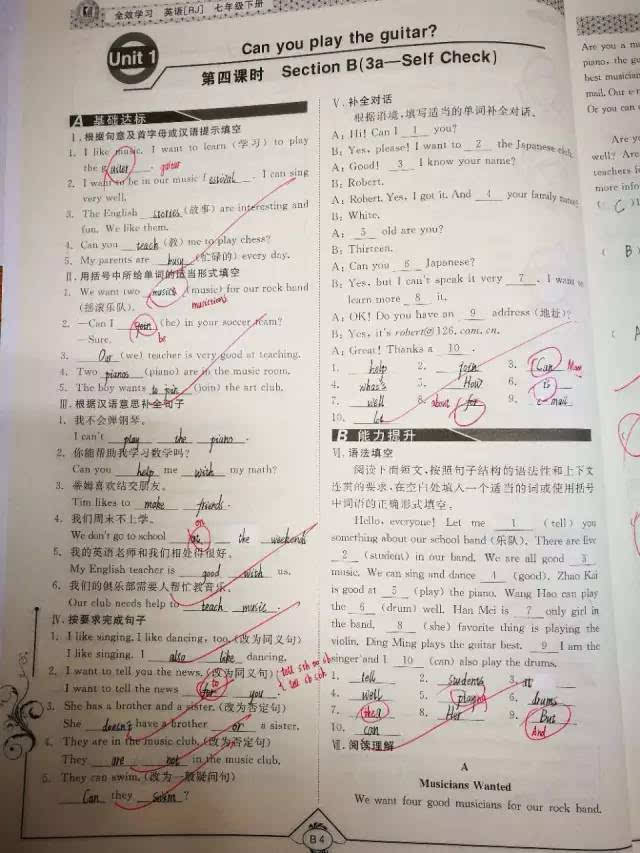 全效学习 英语[RJ] 七年级下册
Unit 1
Can you play the guitar?
第四课时 Section B(3a—Self Check)
A 基础达标
Ⅰ.根据句意及首字母或汉语提示填空
1. I like music. I want to learn (学习) to play
the g uiter . guitar
2. I want to be in our music f estival . I can sing
very well.
3. The English stories (故事) are interesting and
fun. We like them.
4. Can you teach (教) me to play chess?
5. My parents are busy (忙碌的) every day.
Ⅱ.用括号中所给单词的适当形式填空
1. We want two musics (music) for our rock band
(摇滚乐队). musicians
2. —Can I join (be) in your soccer team?
—Sure. be
3. Our (we) teacher is very good at teaching.
4. Two pianos (piano) are in the music room.
5. The boy wants to join (join) the art club.
Ⅲ.根据汉语意思补全句子
1. 我不会弹钢琴。
I can't play the piano .
2. 你能帮助我学习数学吗?
Can you help me with my math?
3. 蒂姆喜欢结交朋友。
Tim likes to make friends .
4. 我们周末不上学。
on
We don't go to school the weekend
5. 我的英语老师和我们相处得很好。
My English teacher is good with us.
6. 我们的俱乐部需要人帮忙教音乐。
Our club needs help to teach music .
Ⅳ.按要求完成句子
1. I like singing. I like dancing, too. (改为同义句)
I like singing. I also like dancing.
2. I want to tell you the news. (改为同义句)
to
I want to tell the news for you .
3. She has a brother and a sister. (改为否定句)
She doesn't have a brother or a sister.
4. They are in the music club. (改为否定句)
They are not in the music club.
5. They can swim. (改为一般疑问句)
Can they swim ?
Ⅴ.补全对话
根据语境,填写适当的单词补全对话。
A: Hi! Can I 1 you?
B: Yes, please! I want to 2 the Japanese club.
A: Good! 3 I know your name?
B: Robert.
A: Robert. Yes, I got it. And 4 your family name?
B: White.
A: 5 old are you?
B: Thirteen.
A: Can you 6 Japanese?
B: Yes, but I can't speak it very 7 . I want to
learn more 8 it.
A: OK! Do you have an 9 address (地址)?
B: Yes, it's robert@126.com.cn.
A: Great! Thanks a 10 .
1. help 2. join 3. Can May
4. what's 5. How 6.
7. well 8. about for 9. e-mail
10. lot
B 能力提升
Ⅵ.语法填空
阅读下面短文,按照句子结构的语法性和上下文
连贯的要求,在空白处填入一个适当的词或使用括号
中词语的正确形式填空。
Hello, everyone! Let me 1 (tell) you
something about our school band (乐队). There are five
2 (student) in our band. We are all good 3
music. We can sing and dance 4 (good). Zhao Kai
is good at 5 (play) the piano. Wang Hao can play
the 6 (drum) well. Han Mei is 7 only girl in
the band. 8 (she) favorite thing is playing the
violin. Ding Ming plays the guitar best. 9 I am the
singer and I 10 (can) also play the drums.
1. tell 2. students 3. at
4. well 5. playing 6. drums
7. the 8. Her 9. But
10. can And
Ⅶ.阅读理解
A
Musicians Wanted
We want four good musicians for our rock band.
B4